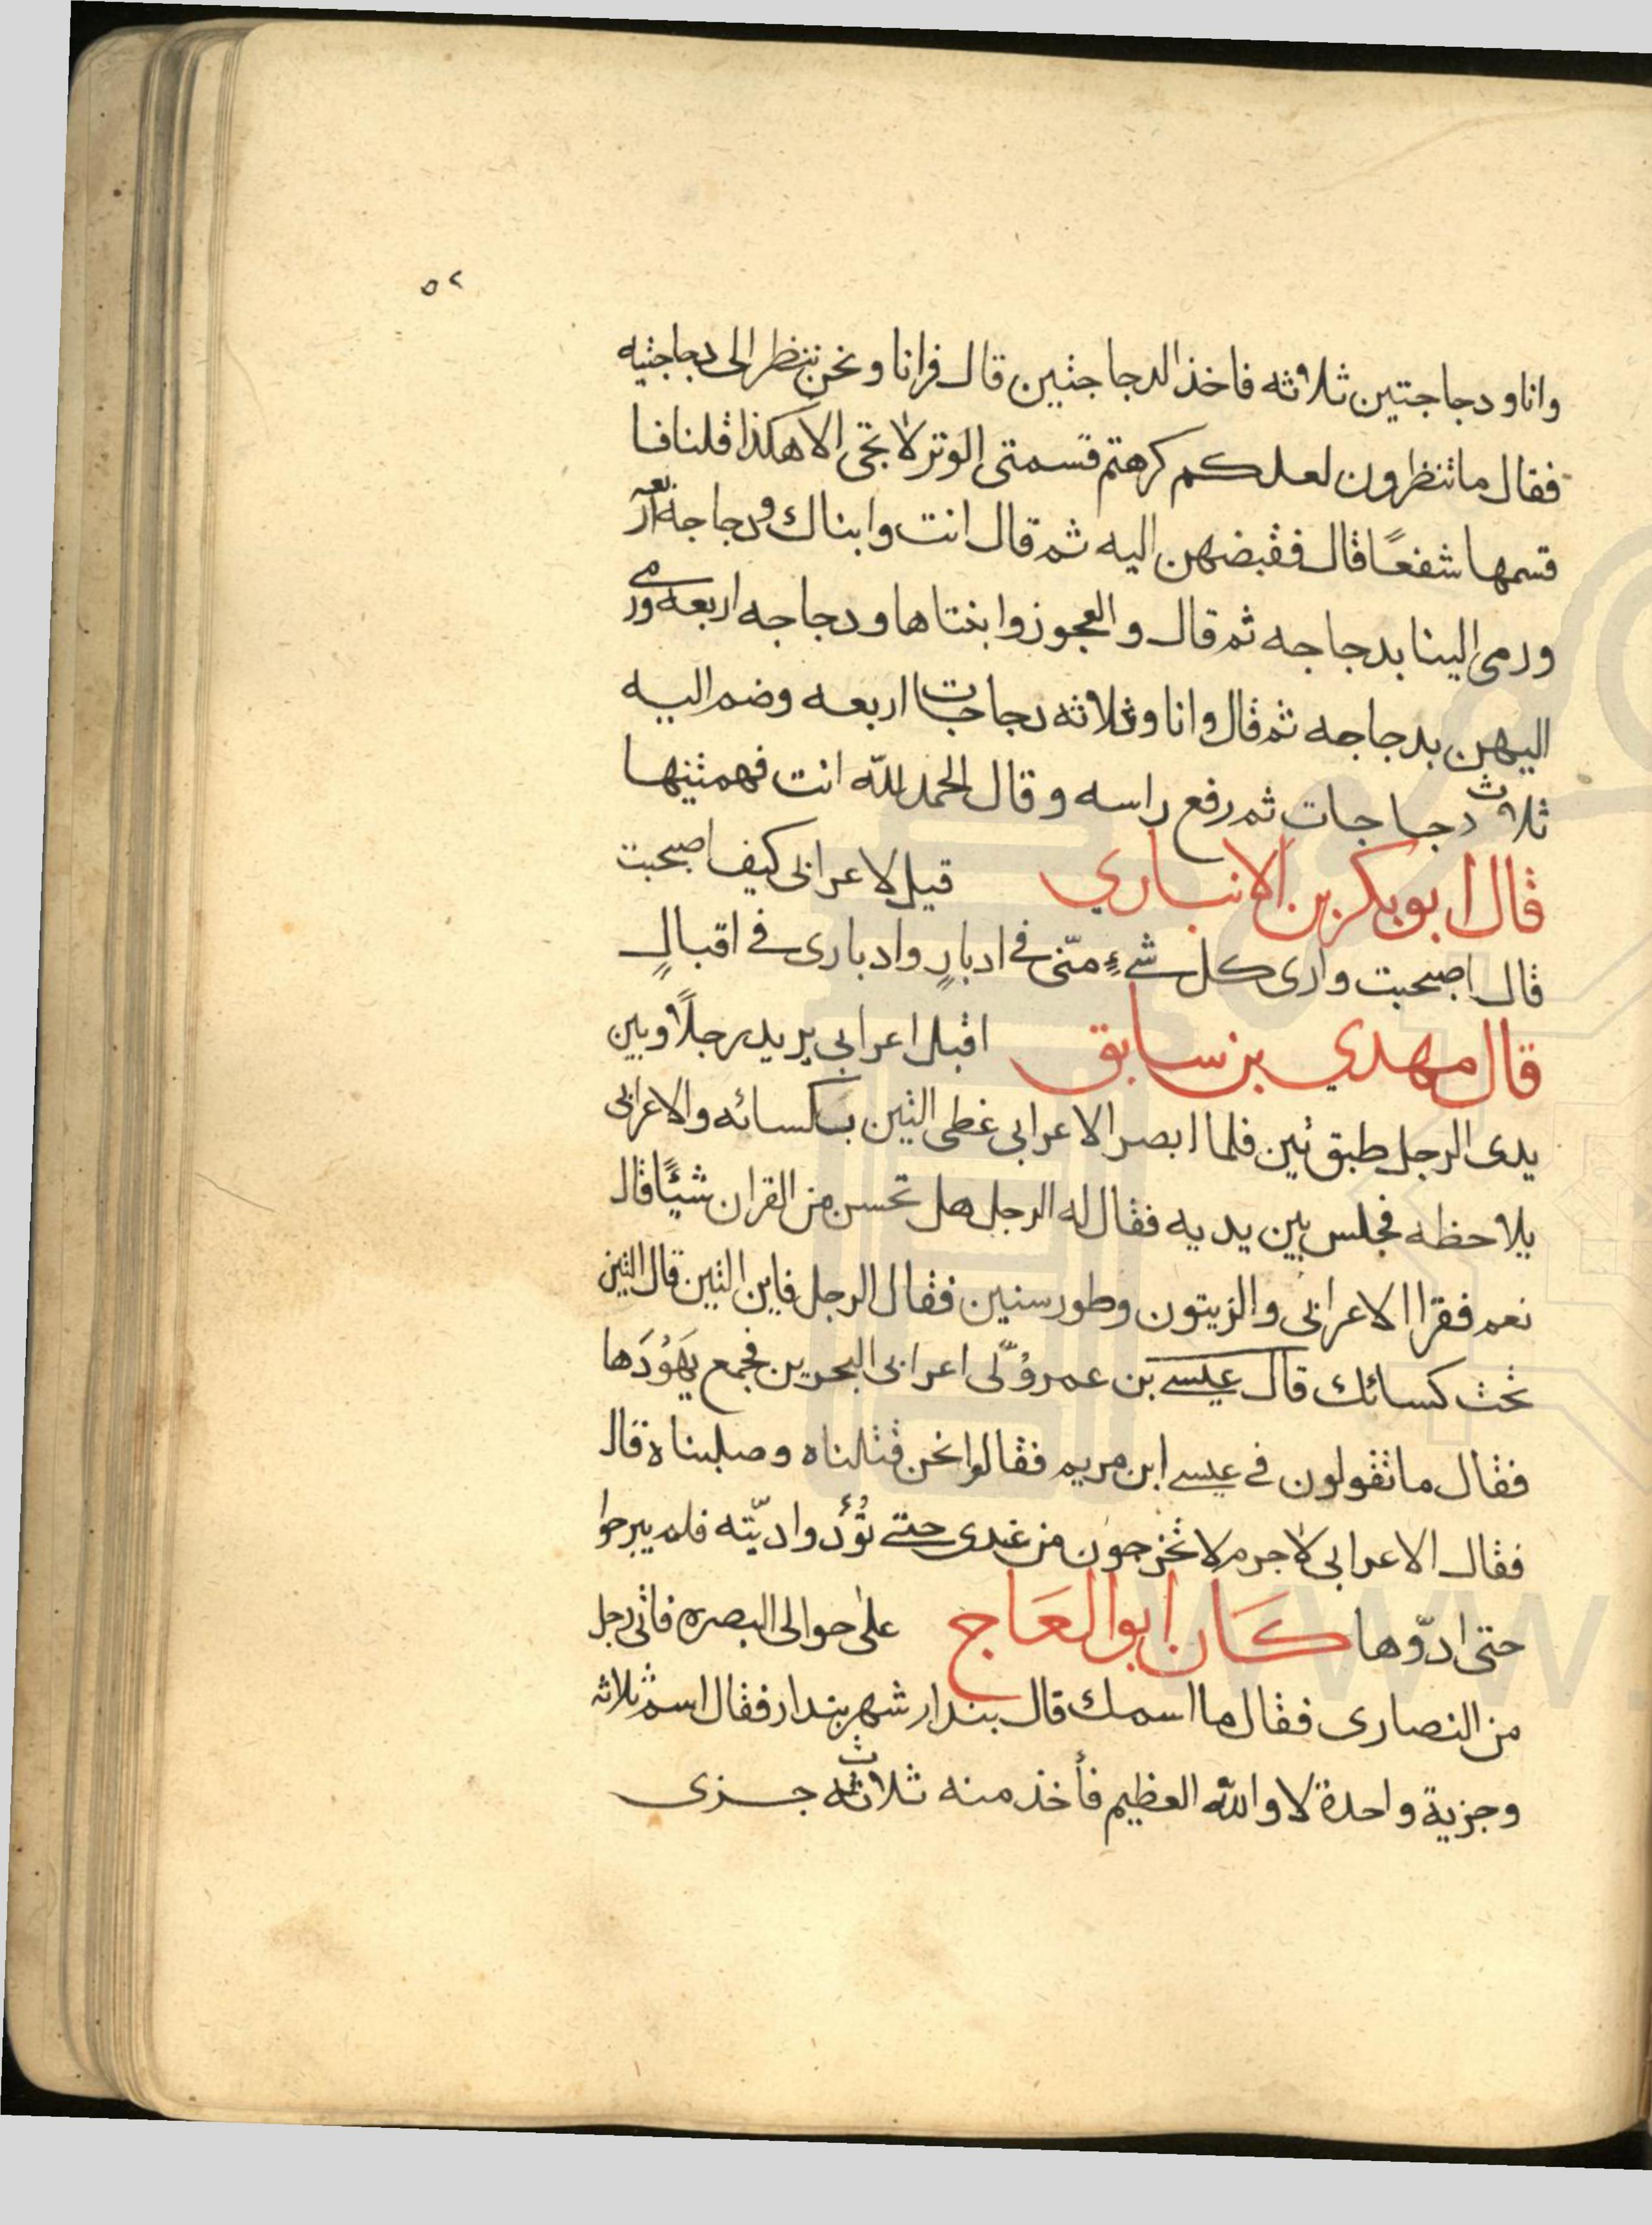 ٥٢
وانا ودجاجتين ثلاثه فاخذ الدجاجتين قال فرانا ونحن ننظر الى دجاجتيه
فقال ما تنظرون لعلكم كرهتم قسمتي الوتر لا تجي الا هكذا قلنا فا
قسمها شفعًا قال فقبضهن اليه ثم قال انت وابناك ودجاجه اربعه
ورمى الينا بدجاجه ثم قال والعجوز وابنتاها ودجاجه اربعه ورمى
اليهن بدجاجه ثم قال وانا وثلاثه دجاجات اربعه وضم اليه
ثلاث دجاجات ثم رفع راسه وقال الحمد لله انت فهمتنيها
قال ابو بكر بن الانباري قيل لاعرابي كيف اصبحت
قال اصبحت وارى كل شيء منّي في ادبارٍ وادباري في اقبالٍ
قال مهدي بن سابق اقبل اعرابي يريد رجلًا وبين
يدى الرجل طبق تين فلما ابصر الاعرابي غطى التين بكسائه والاعرابي
يلاحظه فجلس بين يديه فقال له الرجل هل تحسن من القران شيئًا قال
نعم فقرا الاعرابي والزيتون وطور سنين فقال الرجل فاين التين قال التين
تحت كسائك قال عيسى بن عمر وُلّى اعرابي البحرين فجمع يَهُوْدَها
فقال ما تقولون في عيسى ابن مريم فقالوا نحن قتلناه وصلبناه قال
فقال الاعرابي لا جرم لا تخرجون من عندى حتى تؤدوا ديّته فلم يبرحوا
حتى ادّوها كَان ابو العَاج على حوالى البصره فاتي رجل
من النصارى فقال ما اسمك قال بندار شهر بندار فقال اسم ثلاثه
وجزية واحدة لا والله العظيم فأخذ منه ثلاث جزى